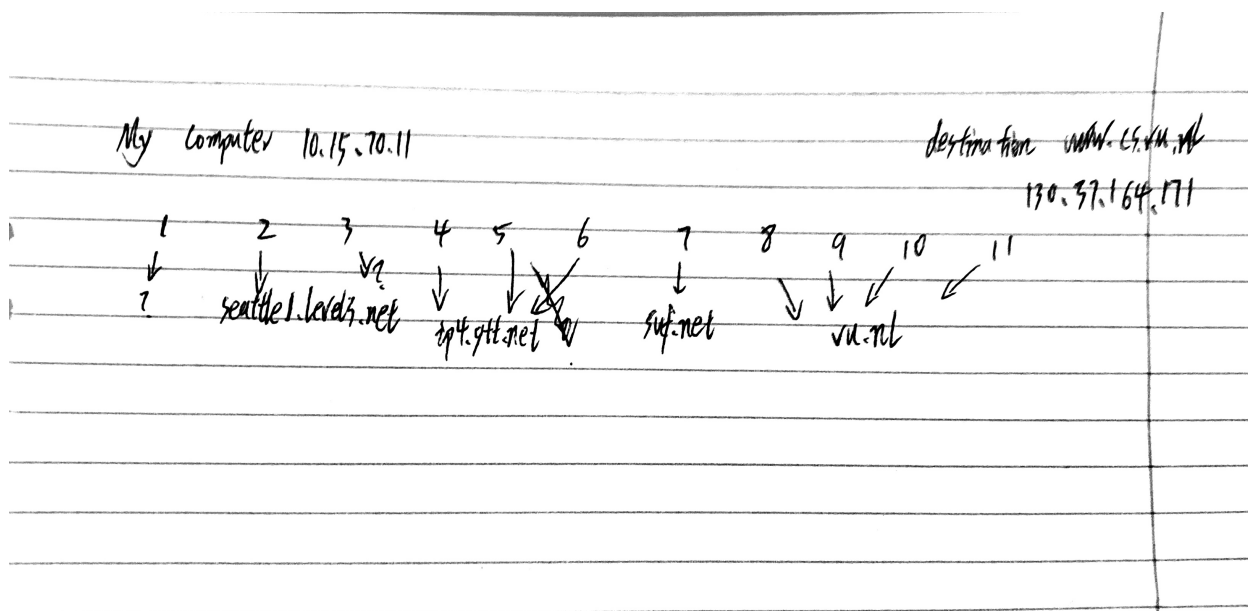 My computer 10.15.70.11
destination www.cs.vu.nl
130.37.164.171
1 2 3 4 5 6 7 8 9 10 11
?
? seattle1.level3.net ip4.gtt.net surf.net vu.nl